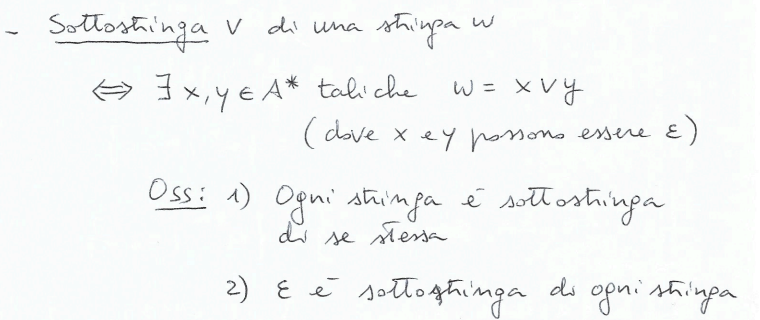 - Sottostringa v di una stringa w
⇔ ∃ x, y ∈ A* tali che w = x v y
(dove x e y possono essere ε)
Oss: 1) Ogni stringa è sottostringa
di se stessa
2) ε è sottostringa di ogni stringa